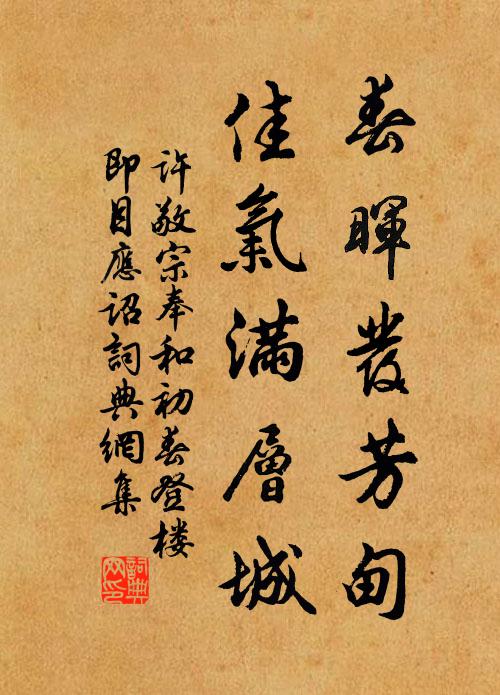 春暉發芳甸
佳氣滿層城
許敬宗奉和初春登楼
即目應詔詞典網集
詞典
网印